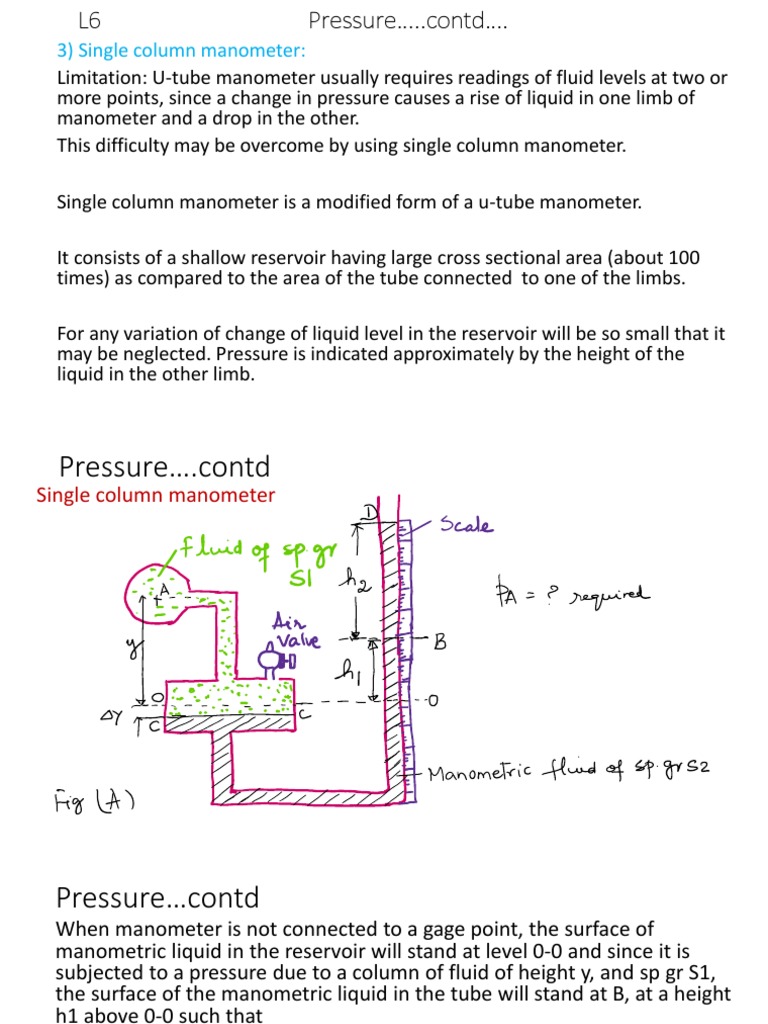 L6 Pressure.....contd....
3) Single column manometer:
Limitation: U-tube manometer usually requires readings of fluid levels at two or
more points, since a change in pressure causes a rise of liquid in one limb of
manometer and a drop in the other.
This difficulty may be overcome by using single column manometer.
Single column manometer is a modified form of a u-tube manometer.
It consists of a shallow reservoir having large cross sectional area (about 100
times) as compared to the area of the tube connected to one of the limbs.
For any variation of change of liquid level in the reservoir will be so small that it
may be neglected. Pressure is indicated approximately by the height of the
liquid in the other limb.
Pressure....contd
Single column manometer
D
Scale
fluid of sp.gr
S1
h2
A
PA = ? required
Air
Valve
y
B
h1
O
O
ΔY
C
C
Manometric fluid of sp.gr S2
Fig (A)
Pressure...contd
When manometer is not connected to a gage point, the surface of
manometric liquid in the reservoir will stand at level 0-0 and since it is
subjected to a pressure due to a column of fluid of height y, and sp gr S1,
the surface of the manometric liquid in the tube will stand at B, at a height
h1 above 0-0 such that